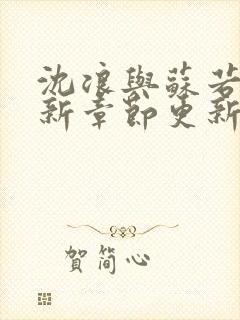 沈浪與蘇若
新章節更新
賀簡心